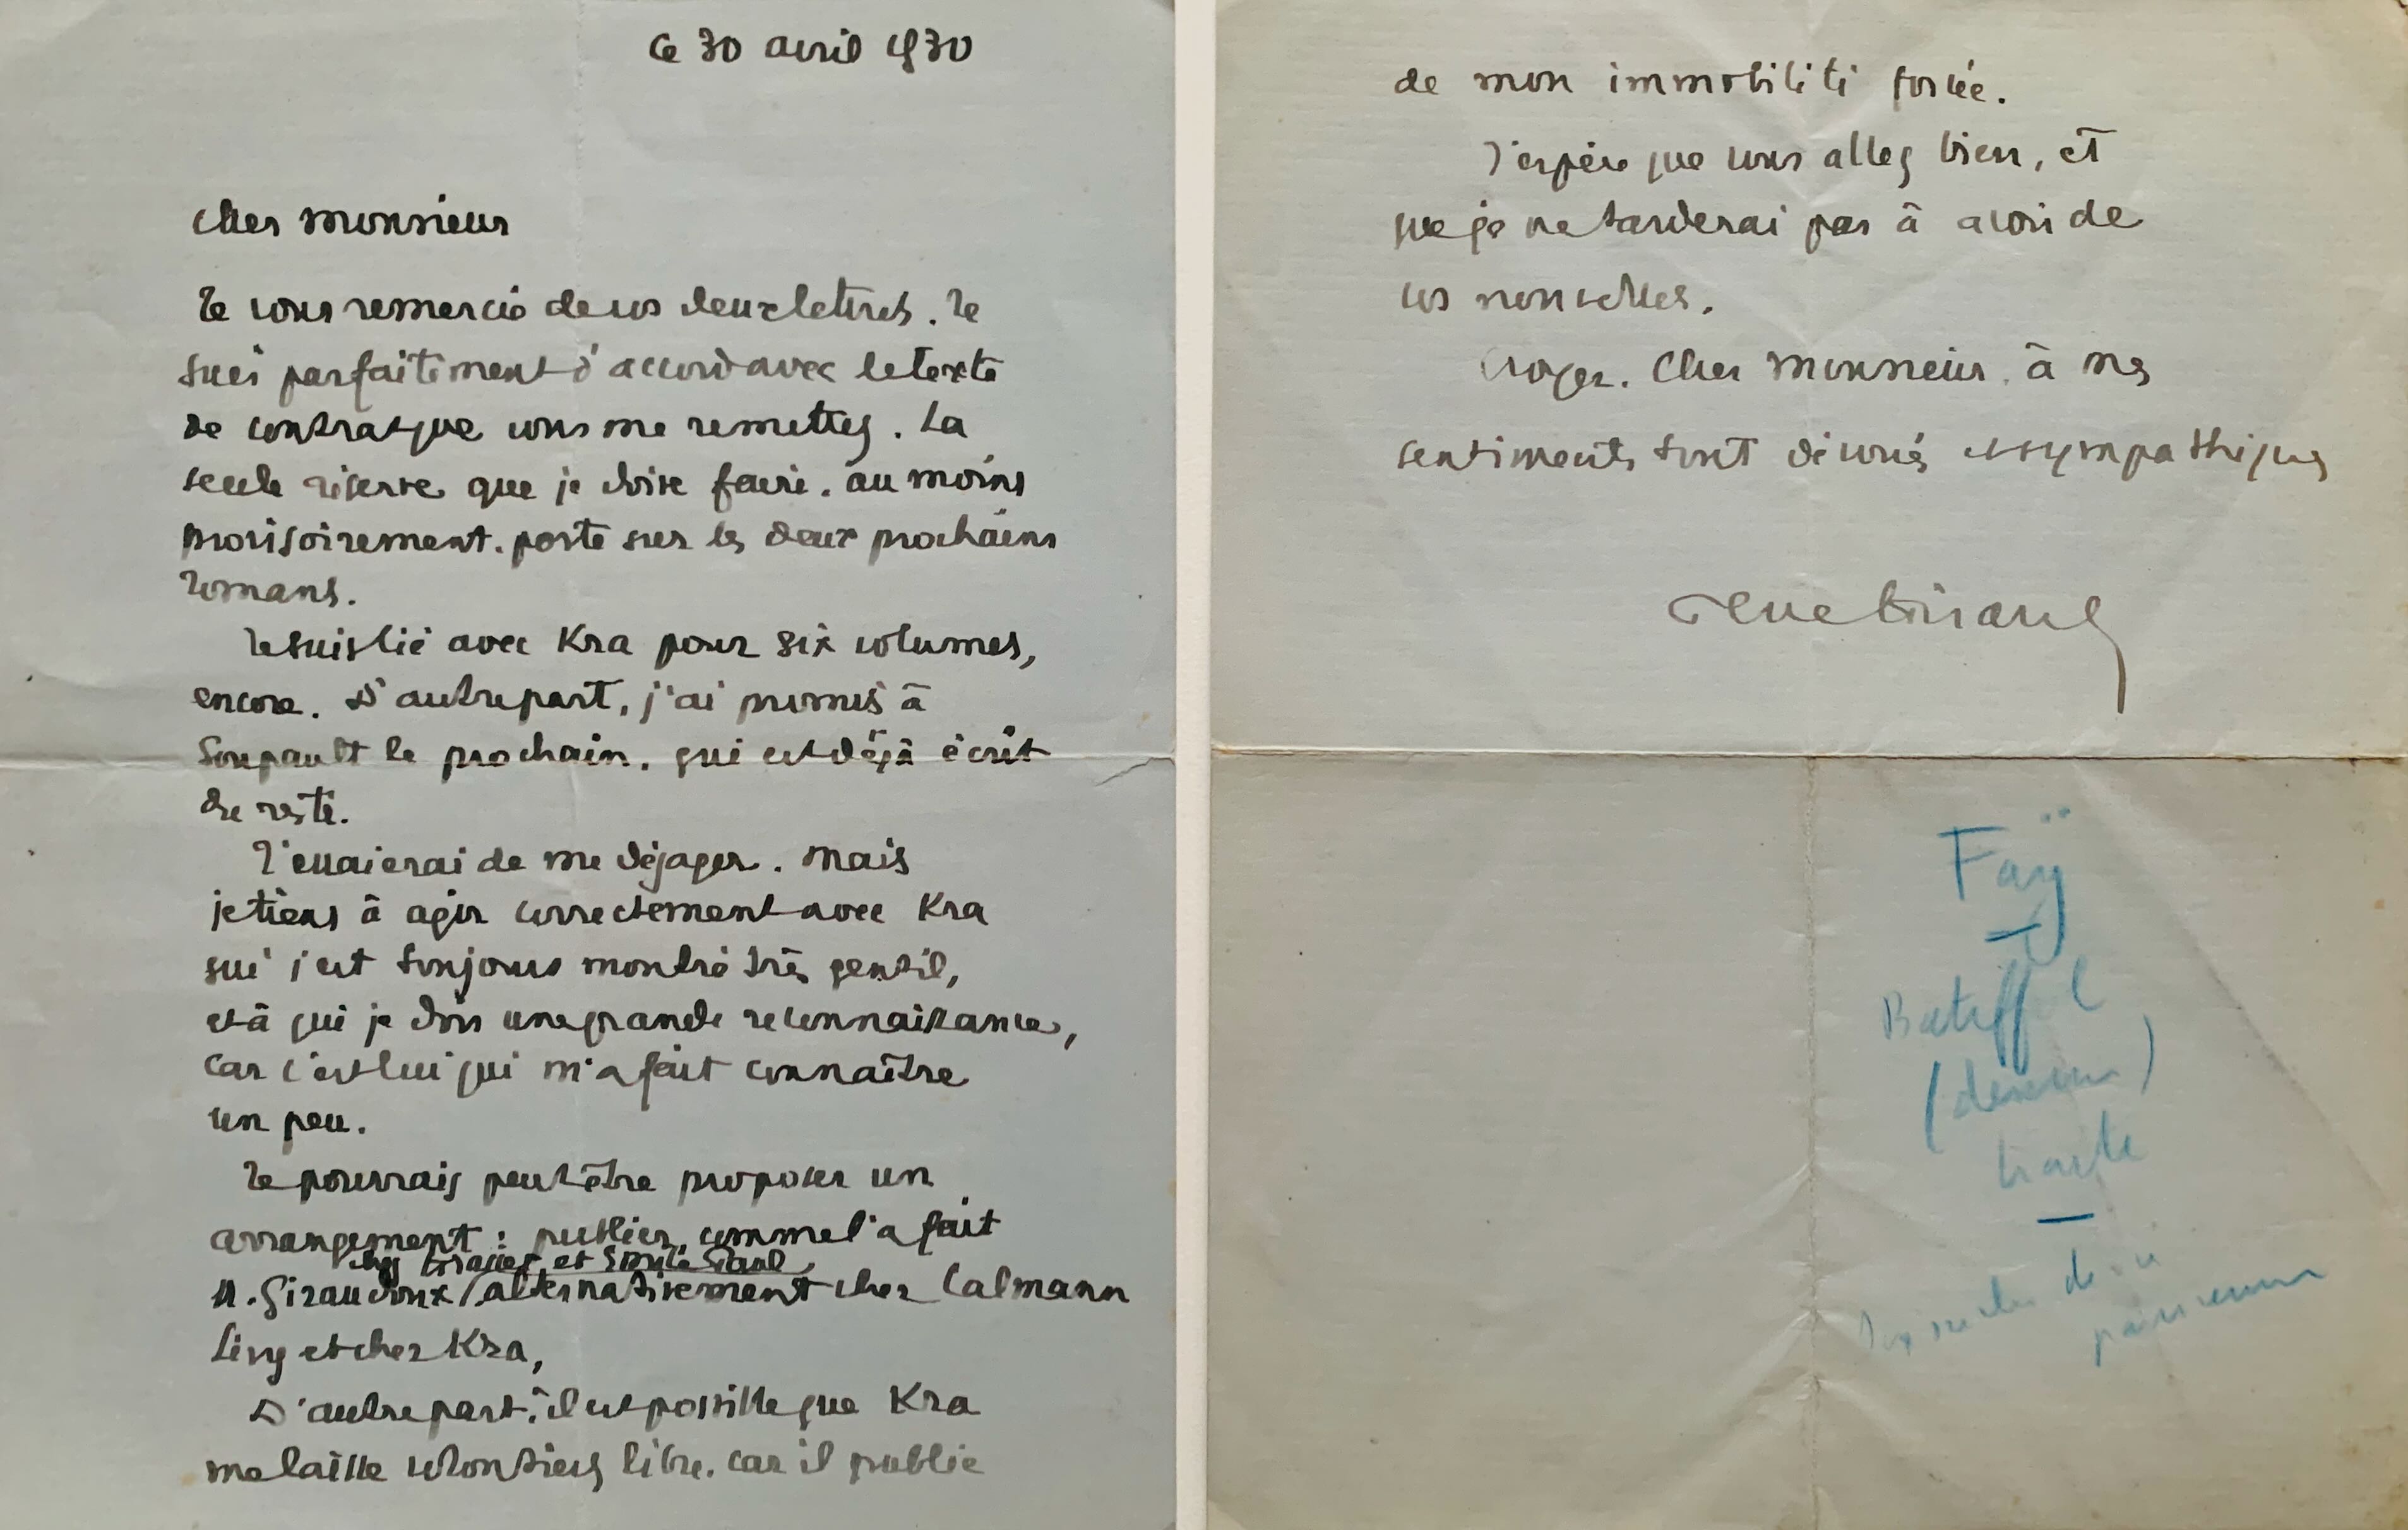 Ce 30 avril 1930
Cher Monsieur
Je vous remercie de vos deux lettres. Je
suis parfaitement d'accord avec le texte
de contrat que vous me remettez. La
seule réserve que je doive faire, au moins
provisoirement, porte sur les deux prochains
romans.
Je suis lié avec Kra pour six volumes,
encore. D'autre part, j'ai promis à
Soupault le prochain, qui est déjà écrit
du reste.
J'essaierai de me dégager. Mais
je tiens à agir correctement avec Kra
qui s'est toujours montré très gentil,
et à qui je dois une grande reconnaissance,
car c'est lui qui m'a fait connaître
un peu.
Je pourrais peut être proposer un
arrangement : publier, comme l'a fait
chez Grasset et Emile Paul,
M. Giraudoux / alternativement chez Calmann
Lévy et chez Kra,
D'autre part, il est possible que Kra
me laisse volontiers libre, car il publie
de mon immobilité forcée.
J'espère que vous allez bien, et
que je ne tarderai pas à avoir de
vos nouvelles.
Croyez, Cher Monsieur, à mes
sentiments tout dévoués et sympathiques
Faÿ
—
Batiffol
(
)
—
de